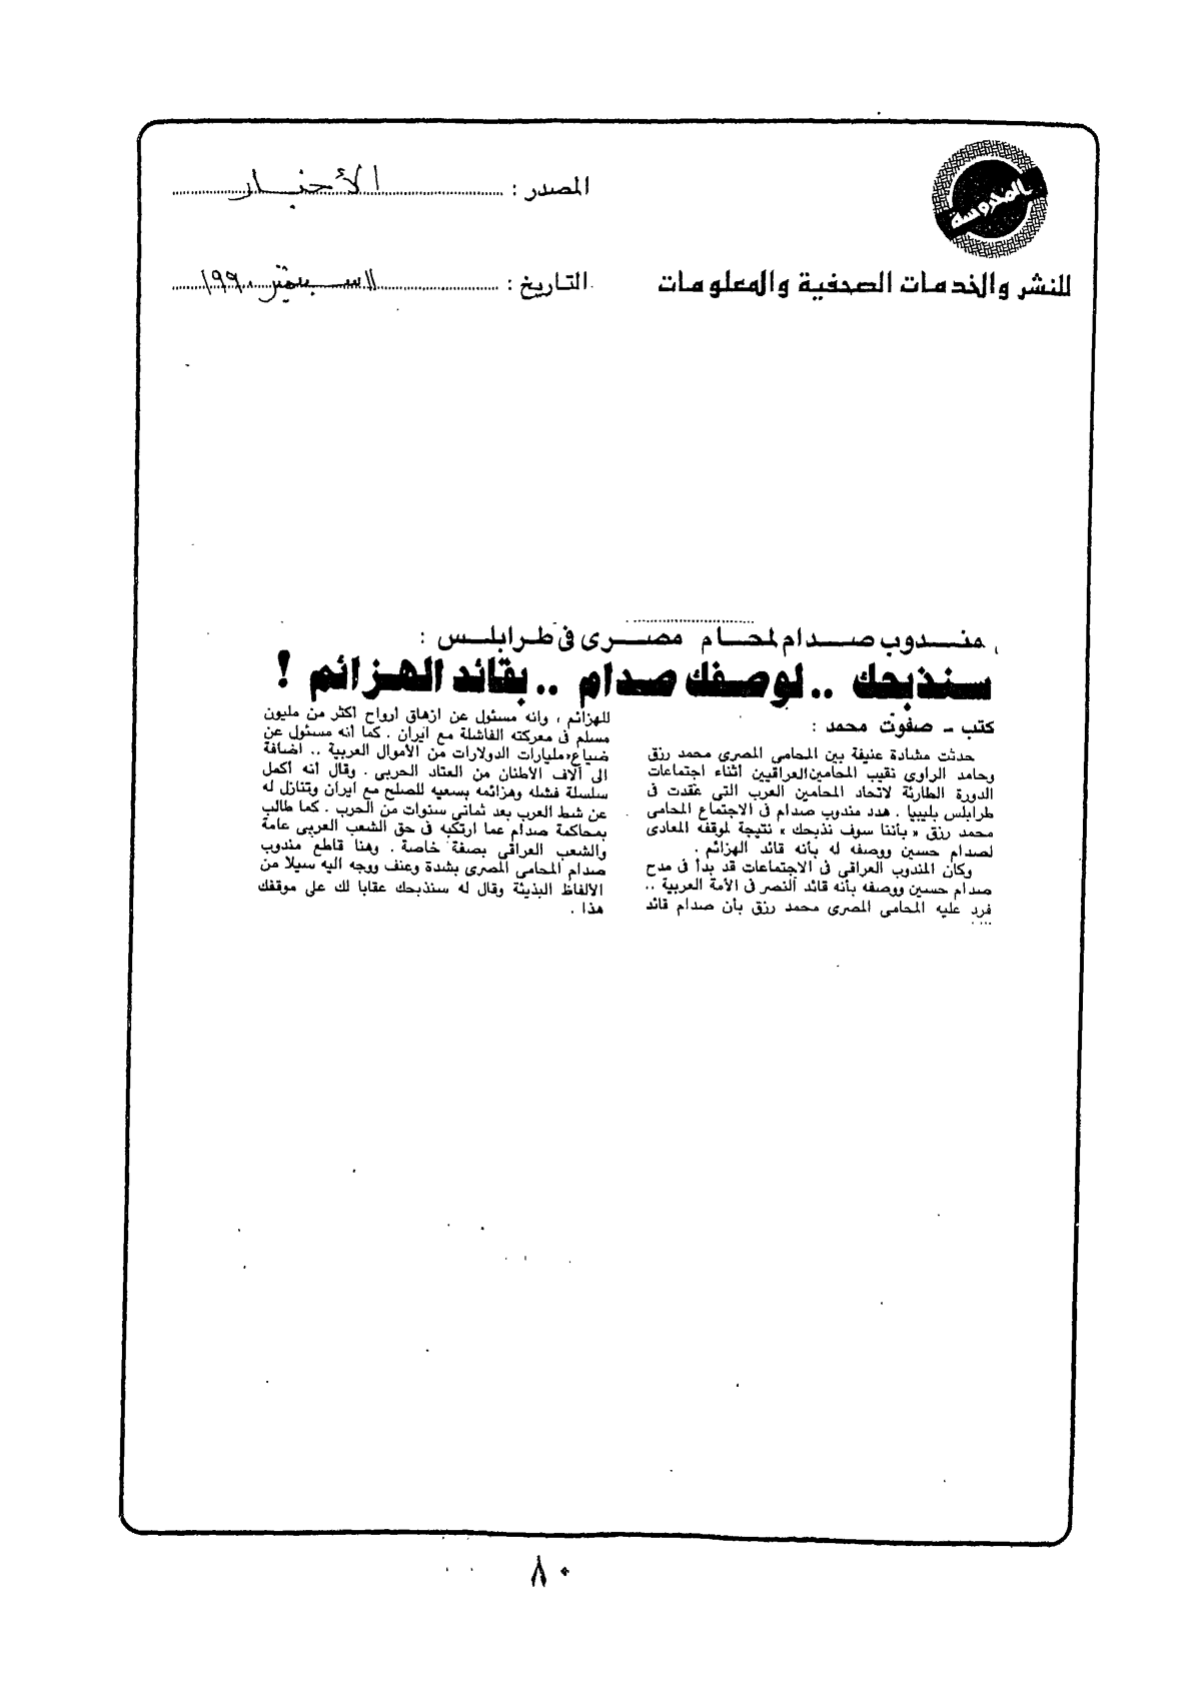 المحروسة
للنشر والخدمات الصحفية والمعلومات
المصدر : الأخبار
التاريخ : ١١ سبتمبر ١٩٩٠
مندوب صدام لمحام مصرى فى طرابلس :
سنذبحك .. لوصفك صدام .. بقائد الهزائم !
كتب - صفوت محمد :
حدثت مشادة عنيفة بين المحامى المصرى محمد رزق
وحامد الراوى نقيب المحامين العراقيين أثناء اجتماعات
الدورة الطارئة لاتحاد المحامين العرب التى عقدت فى
طرابلس بليبيا . هدد مندوب صدام فى الاجتماع المحامى
محمد رزق « بأننا سوف نذبحك » نتيجة لموقفه المعادى
لصدام حسين ووصفه له بأنه قائد الهزائم .
وكان المندوب العراقى فى الاجتماعات قد بدأ فى مدح
صدام حسين ووصفه بأنه قائد النصر فى الأمة العربية ..
فرد عليه المحامى المصرى محمد رزق بأن صدام قائد
للهزائم ، وانه مسئول عن ازهاق ارواح اكثر من مليون
مسلم فى معركته الفاشلة مع ايران . كما انه مسئول عن
ضياع مليارات الدولارات من الأموال العربية .. اضافة
الى آلاف الأطنان من العتاد الحربى . وقال انه أكمل
سلسلة فشله وهزائمه بسعيه للصلح مع ايران وتنازل له
عن شط العرب بعد ثمانى سنوات من الحرب . كما طالب
بمحاكمة صدام عما ارتكبه فى حق الشعب العربى عامة
والشعب العراقى بصفة خاصة . وهنا قاطع مندوب
صدام المحامى المصرى بشدة وعنف ووجه اليه سيلا من
الالفاظ البذيئة وقال له سنذبحك عقابا لك على موقفك
هذا .
٨٠